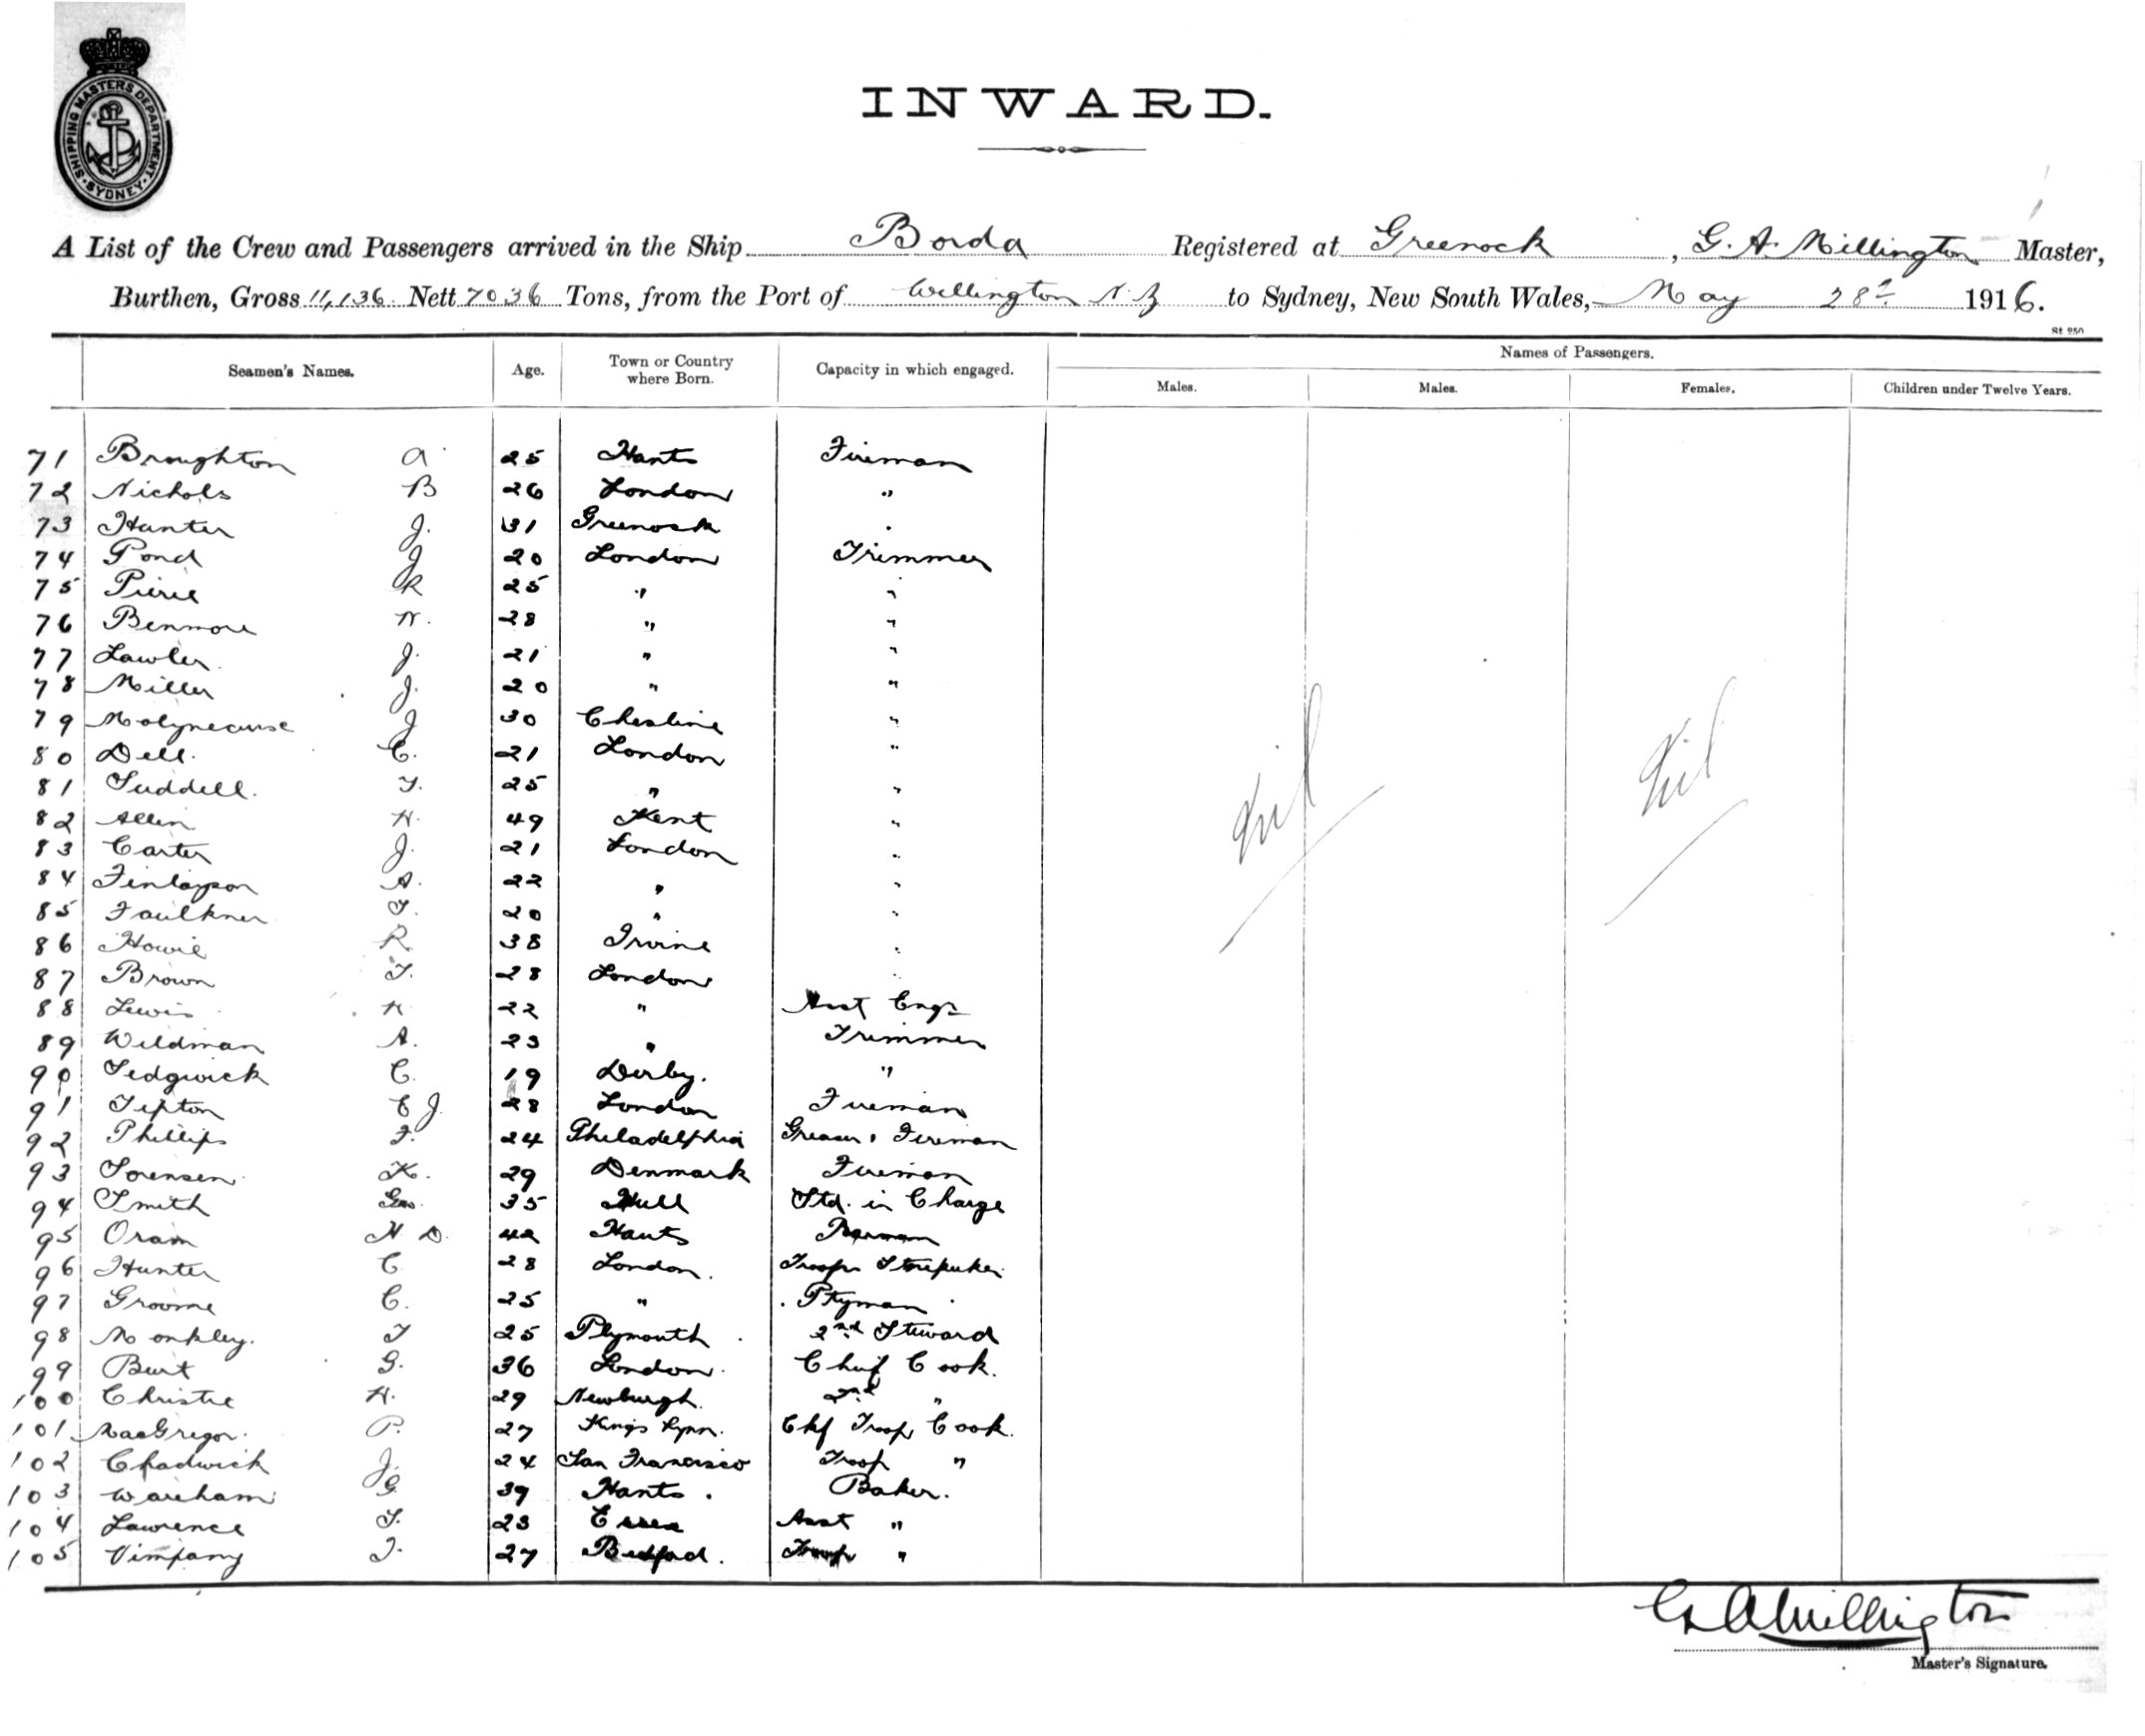 SHIPPING MASTERS DEPARTMENT
SYDNEY
INWARD.
A List of the Crew and Passengers arrived in the Ship Borda Registered at Greenock, G. A. Millington Master,
Burthen, Gross 11,136 Nett 7036 Tons, from the Port of Wellington N Z to Sydney, New South Wales, May 28th 1916.
St 250
Seamen's Names. Age. Town or Country where Born. Capacity in which engaged. Names of Passengers.
Males. Males. Females. Children under Twelve Years.
71 Broughton A 25 Hants Fireman
72 Nichols B 26 London "
73 Hunter J. 31 Greenock "
74 Pond J 20 London Trimmer
75 Pierie R 25 " "
76 Benmore W. 28 " "
77 Lawler J. 21 " "
78 Miller J. 20 " "
79 Molyneause J 30 Cheshire "
80 Dell C. 21 London "
81 Suddell T. 25 " "
82 Allen H. 49 Kent "
83 Carter J. 21 London "
84 Finlayson A. 22 " "
85 Faulkner T. 20 " "
86 Howie R 38 Irvine "
87 Brown T. 28 London "
88 Lewis H 22 " Asst Engr
89 Wildman A. 23 " Trimmer
90 Sedgwick C. 19 Derby. "
91 Tipton E J. 28 London Fireman
92 Phillips F. 24 Philadelphia Greaser & Fireman
93 Sorensen K. 29 Denmark Fireman
94 Smith Geo. 35 Hull Std. in Charge
95 Oram H D. 42 Hants Barman
96 Hunter C 28 London. Troop Storekeeper
97 Groome C. 25 " Ptyman
98 Monkley. T 25 Plymouth 2nd Steward
99 Burt G. 36 London. Chief Cook.
100 Christie H. 29 Newburgh. 2nd "
101 MacGregor. P. 27 Kings Lynn. Chf Troop Cook.
102 Chadwick J. 24 San Francisco Troop "
103 Wareham G 39 Hants. Baker.
104 Lawrence T. 23 Essex Asst "
105 Vimpany J. 27 Bedford. Troop "
Nil Nil
G A Millington
Master's Signature.